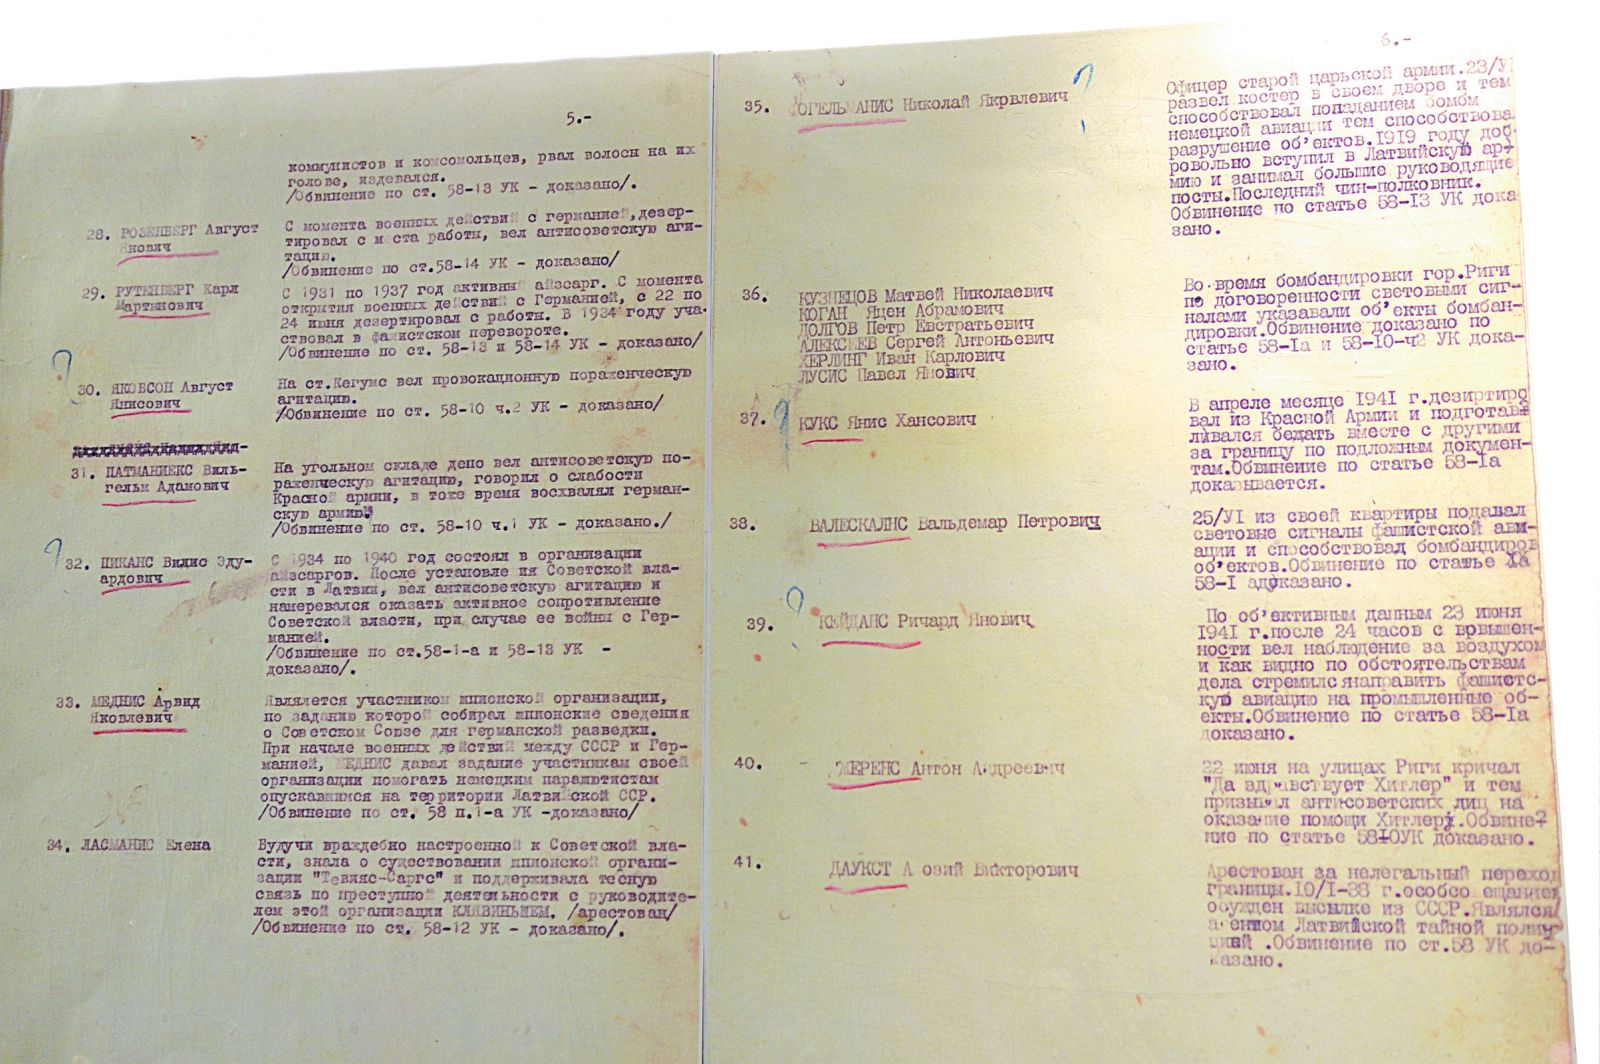 5.-
коммунистов и комсомольцев, рвал волосы на их
голове, издевался.
/Обвинение по ст. 58-13 УК - доказано/.
28. РОЗЕНБЕРГ Август
Янович
С момента военных действий с германией,дезер-
тировал с места работы, вел антисоветскую аги-
тацию.
/Обвинение по ст.58-14 УК - доказано/
29. РУТЕНБЕРГ Карл
Мартынович
С 1931 по 1937 год активный айзсарг. С момента
открытия военных действий с Германией, с 22 по
24 июня дезертировал с работы. В 1934 году уча-
ствовал в фашистском перевороте.
/Обвинение по ст. 58-13 и 58-14 УК - доказано/
30. ЯКОБСОН Август
Янисович
На ст.Кегумс вел провокационную пораженческую
агитацию.
/Обвинение по ст. 58-10 ч.2 УК - доказано/
31. ПАТМАНИЕКС Виль-
гельм Адамович
На угольном складе депо вел антисоветскую по-
раженческую агитацию, говорил о слабости
Красной армии, в тоже время восхвалял герман-
скую армию.
/Обвинение по ст. 58-10 ч.1 УК - доказано./
32. ПИКАНС Вилис Эду-
ардович
С 1934 по 1940 год состоял в организации
айзсаргов. После установле ия Советской вла-
сти в Латвии, вел антисоветскую агитацию и
намеревался оказать активное сопротивление
Советской власти, при случае ее войны с Гер-
манией.
/Обвинение по ст.58-1-а и 58-13 УК -
доказано/.
33. МЕДНИС Арвид
Яковлевич
Является участником шпионской организации,
по заданию которой собирал шпионские сведения
о Советском Союзе для германской разведки.
При начале военных действий между СССР и Гер-
манией, МЕДНИС давал задание участникам своей
организации помогать немецким парашютистам
опускавшимся на территории Латвийской ССР.
/Обвинение по ст. 58 п.1-а УК -доказано/
34. ЛАСМАНИС Елена
Будучи враждебно настроенной к Советской вла-
сти, знала о существовании шпионской органи-
зации "Тевияс-Саргс" и поддерживала тесную
связь по преступной деятельности с руководите-
лем этой организации КЛЯВИНЬШЕМ. /арестован/
/Обвинение по ст. 58-12 УК - доказано/.
6.-
35. ОГЕЛЬМАНИС Николай Якрвлевич
Офицер старой царьской армии.23/У
развел костер в своем дворе и тем
способствовал попаданием бомбм
немецкой авиации тем способствова
разрушение об'ектов.1919 году доб-
ровольно вступил в Латвийскую ар-
мию и занимал большие руководящие
посты.Последний чин-полковник.
Обвинение по статье 58-13 УК дока-
зано.
36. КУЗНЕЦОВ Матвей Николаевич
КОГАН Яцен Абрамович
ДОЛГОВ Петр Евстратьевич
АЛЕКСЕЕВ Сергей Антоньевич
ХЕРЛИНГ Иван Карлович
ЛУСИС Павел Янович
Во время бомбандировки гор.Риги
по договоренности световыми сиг-
налами указывали об'екты бомбан-
дировки.Обвинение доказано по
статье 58-1а и 58-10-ч2 УК дока-
зано.
37. КУКС Янис Хансович
В апреле месяце 1941 г.дезиртиро
вал из Красной Армии и подготав
ливался бедать вместе с другими
за границу по подложным докумен-
там.Обвинение по статье 58-1а
доказывается.
38. ВАЛЕСКАЛНС Вальдемар Петрович
25/У1 из своей квартиры подавал
световые сигналы фашистской ави-
ации и способствовал бомбандиров
об'ектов.Обвинение по статье 1а
58-1 адоказано.
39. КЕЙДАНС Ричард Янович
По об'ективным данным 23 июня
1941 г.после 24 часов с врвышен-
ности вел наблюдение за воздухом
и как видно по обстоятельствам
дела стремилсянаправить фашистс-
кую авиацию на промышленные об-
екты.Обвинение по статье 58-1а
доказано.
40. ЖЕРЕНС Антон Андреевич
22 июня на улицах Риги кричал
"Да здравствует Хитлер" и тем
призывал антисоветских лиц на
оказание помощи Хитлеру.Обвине-
ние по статье 58-10УК доказано.
41. ДАУКСТ А озий Викторович
Арестован за нелегальный переход
границы.10/1-38 г.особсо ещанием
осужден высылке из СССР.Являлся
агентом Латвийской тайной полиц
цией .Обвинение по ст.58 УК до-
казано.